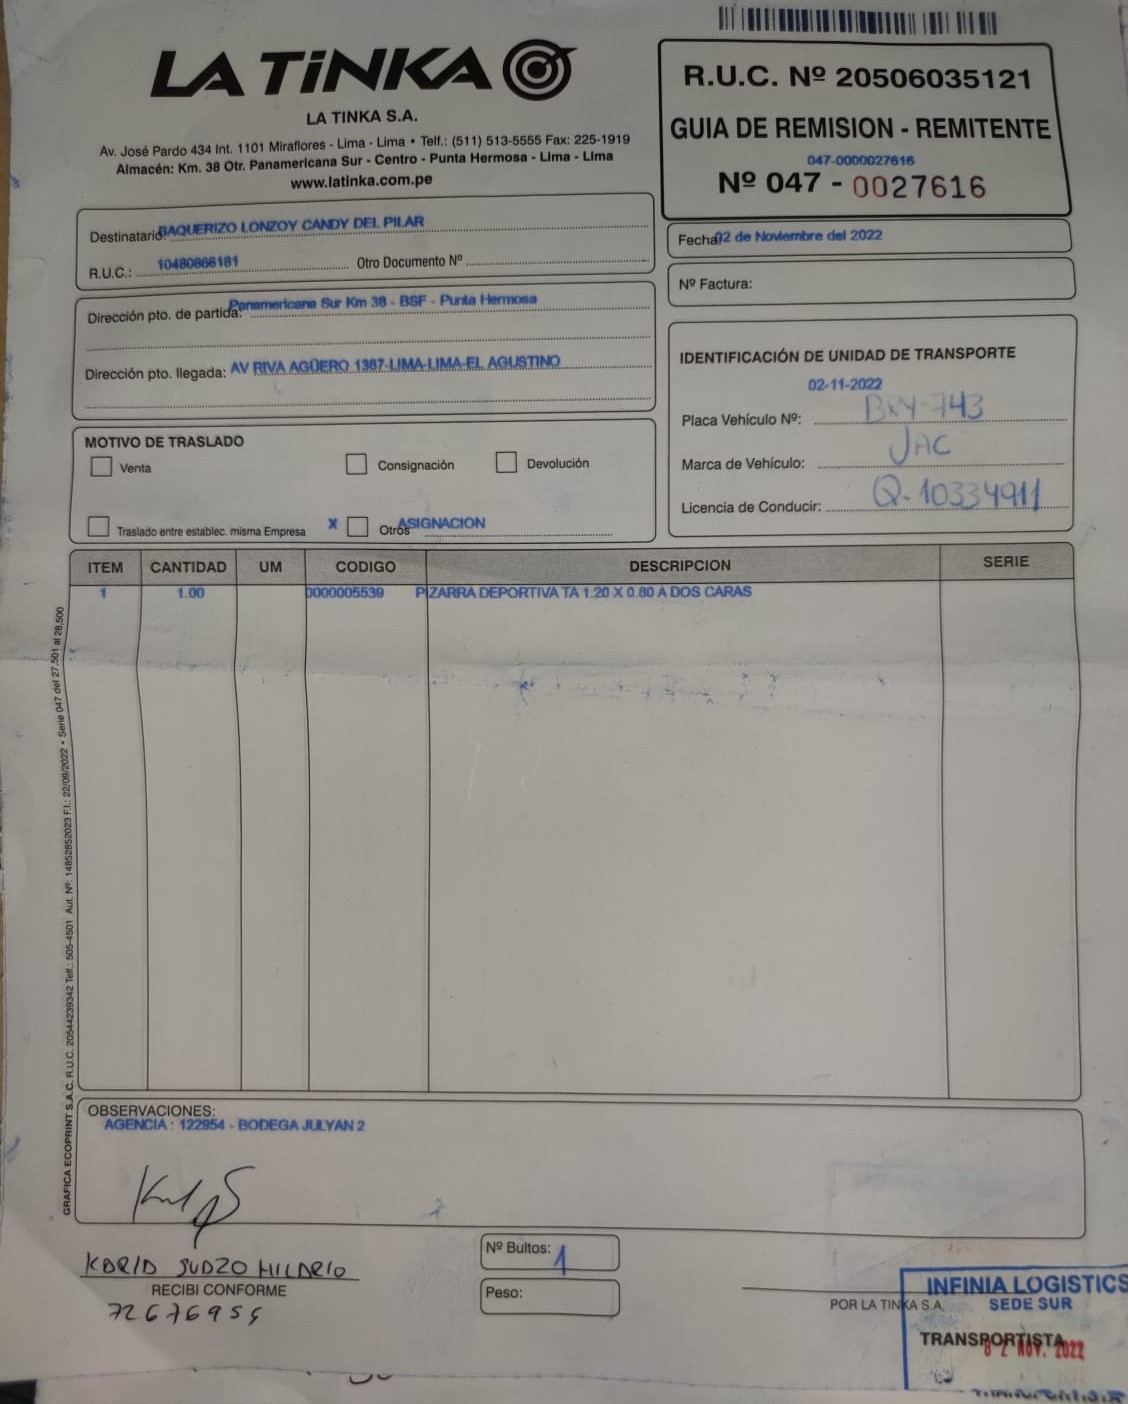 LA TiNKA
LA TINKA S.A.
Av. José Pardo 434 Int. 1101 Miraflores - Lima - Lima • Telf.: (511) 513-5555 Fax: 225-1919
Almacén: Km. 38 Otr. Panamericana Sur - Centro - Punta Hermosa - Lima - Lima
www.latinka.com.pe
R.U.C. Nº 20506035121
GUIA DE REMISION - REMITENTE
047-0000027616
Nº 047 - 0027616
Destinatario: BAQUERIZO LONZOY CANDY DEL PILAR
R.U.C.: 10480866181 Otro Documento Nº
Fecha: 02 de Noviembre del 2022
Nº Factura:
Dirección pto. de partida: Panamericana Sur Km 38 - BSF - Punta Hermosa
Dirección pto. llegada: AV RIVA AGÜERO 1387-LIMA-LIMA-EL AGUSTINO
IDENTIFICACIÓN DE UNIDAD DE TRANSPORTE
02-11-2022
Placa Vehículo Nº: BRY-743
Marca de Vehículo: JAC
Licencia de Conducir: Q-10334911
MOTIVO DE TRASLADO
Venta Consignación Devolución
Traslado entre establec. misma Empresa X Otros ASIGNACION
ITEM CANTIDAD UM CODIGO DESCRIPCION SERIE
1 1.00 0000005539 PIZARRA DEPORTIVA TA 1.20 X 0.80 A DOS CARAS
GRAFICA ECOPRINT S.A.C. R.U.C. 20544239342 Telf.: 505-4501 Aut. Nº: 14852852023 F.I.: 22/09/2022 • Serie 047 del 27,501 al 28,500
OBSERVACIONES:
AGENCIA : 122954 - BODEGA JULYAN 2
RECIBI CONFORME
72676955
Nº Bultos: 1
Peso:
POR LA TINKA S.A.
INFINIA LOGISTICS
SEDE SUR
TRANSPORTISTA
02 NOV. 2022